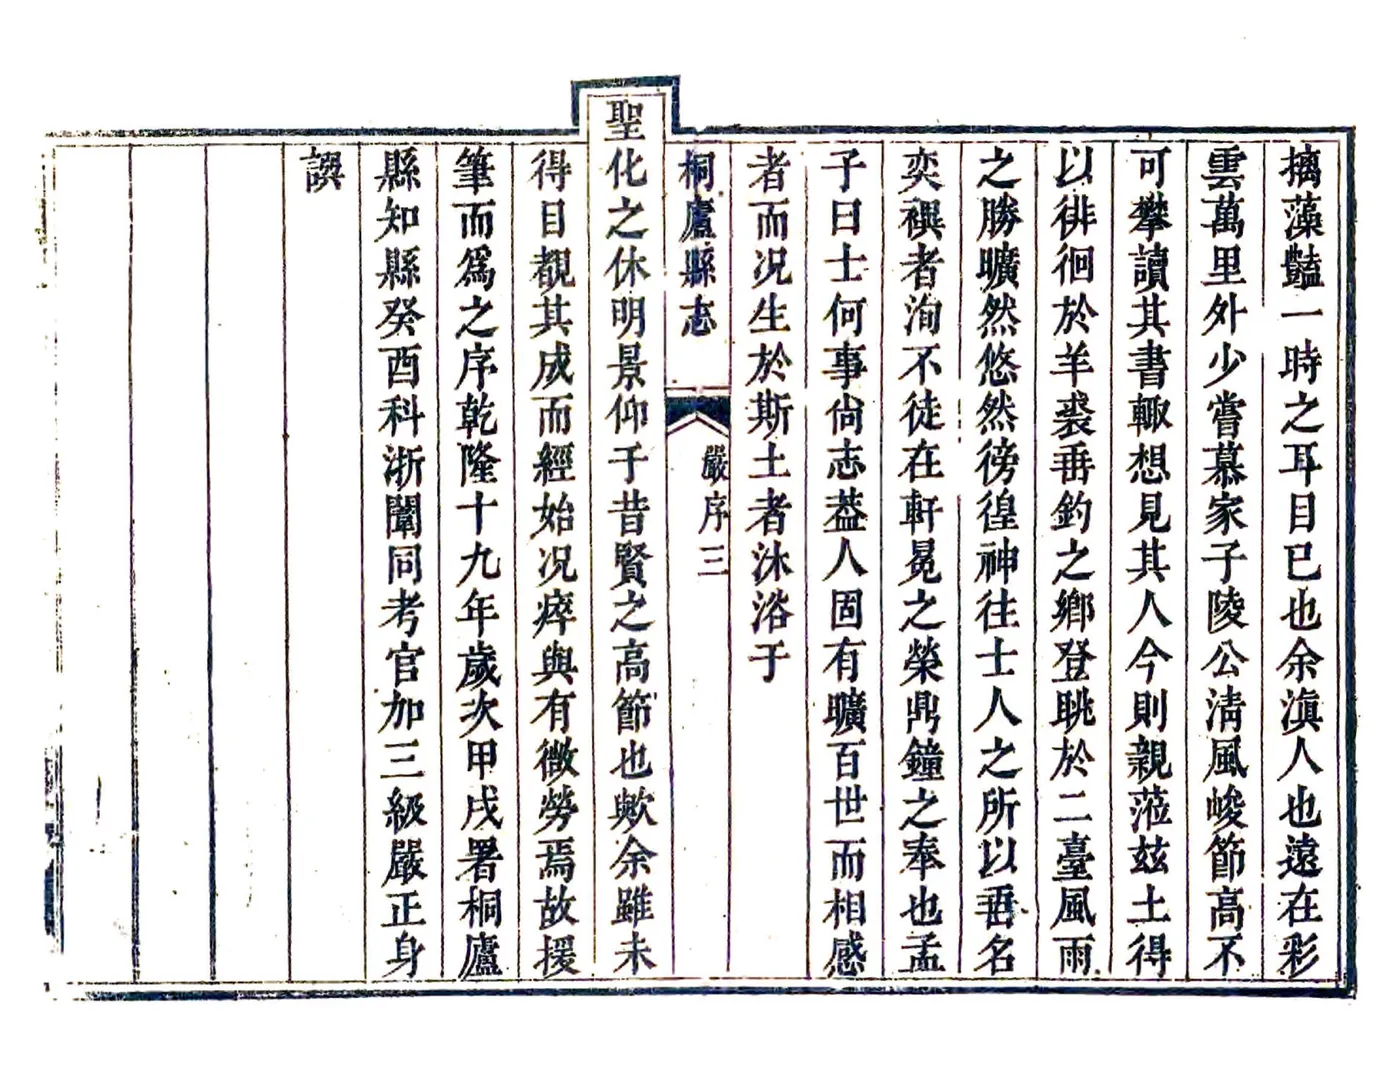 擒藻豔一時之耳目已也余滇人也遠在彩
雲萬里外少嘗慕家子陵公清風峻節高不
可攀讀其書輙想見其人今則親蒞兹土得
以徘徊於羊裘垂釣之鄉登眺於二臺風雨
之勝曠然悠然徬徨神往士人之所以著名
奕禩者洵不徒在軒冕之榮鼎鐘之奉也孟
子曰士何事尙志葢人固有曠百世而相感
者而况生於斯土者沐浴于
桐廬縣志
嚴序 三
聖化之休明景仰于昔賢之高節也歟余雖未
得目覩其成而經始况瘁與有微勞焉故援
筆而爲之序乾隆十九年歲次甲戌署桐廬
縣知縣癸酉科浙闈同考官加三級嚴正身
譔